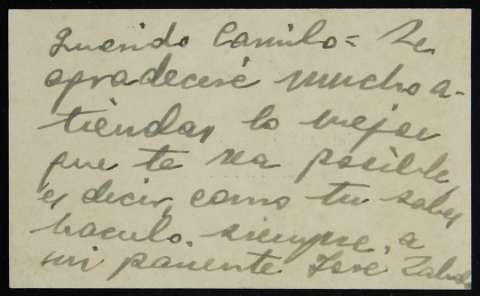 Querido Camilo = Te
agradeceré mucho a-
tiendas lo mejor
que te sea posible,
es decir, como tu sabes
hacerlo, siempre, a
mi pariente José